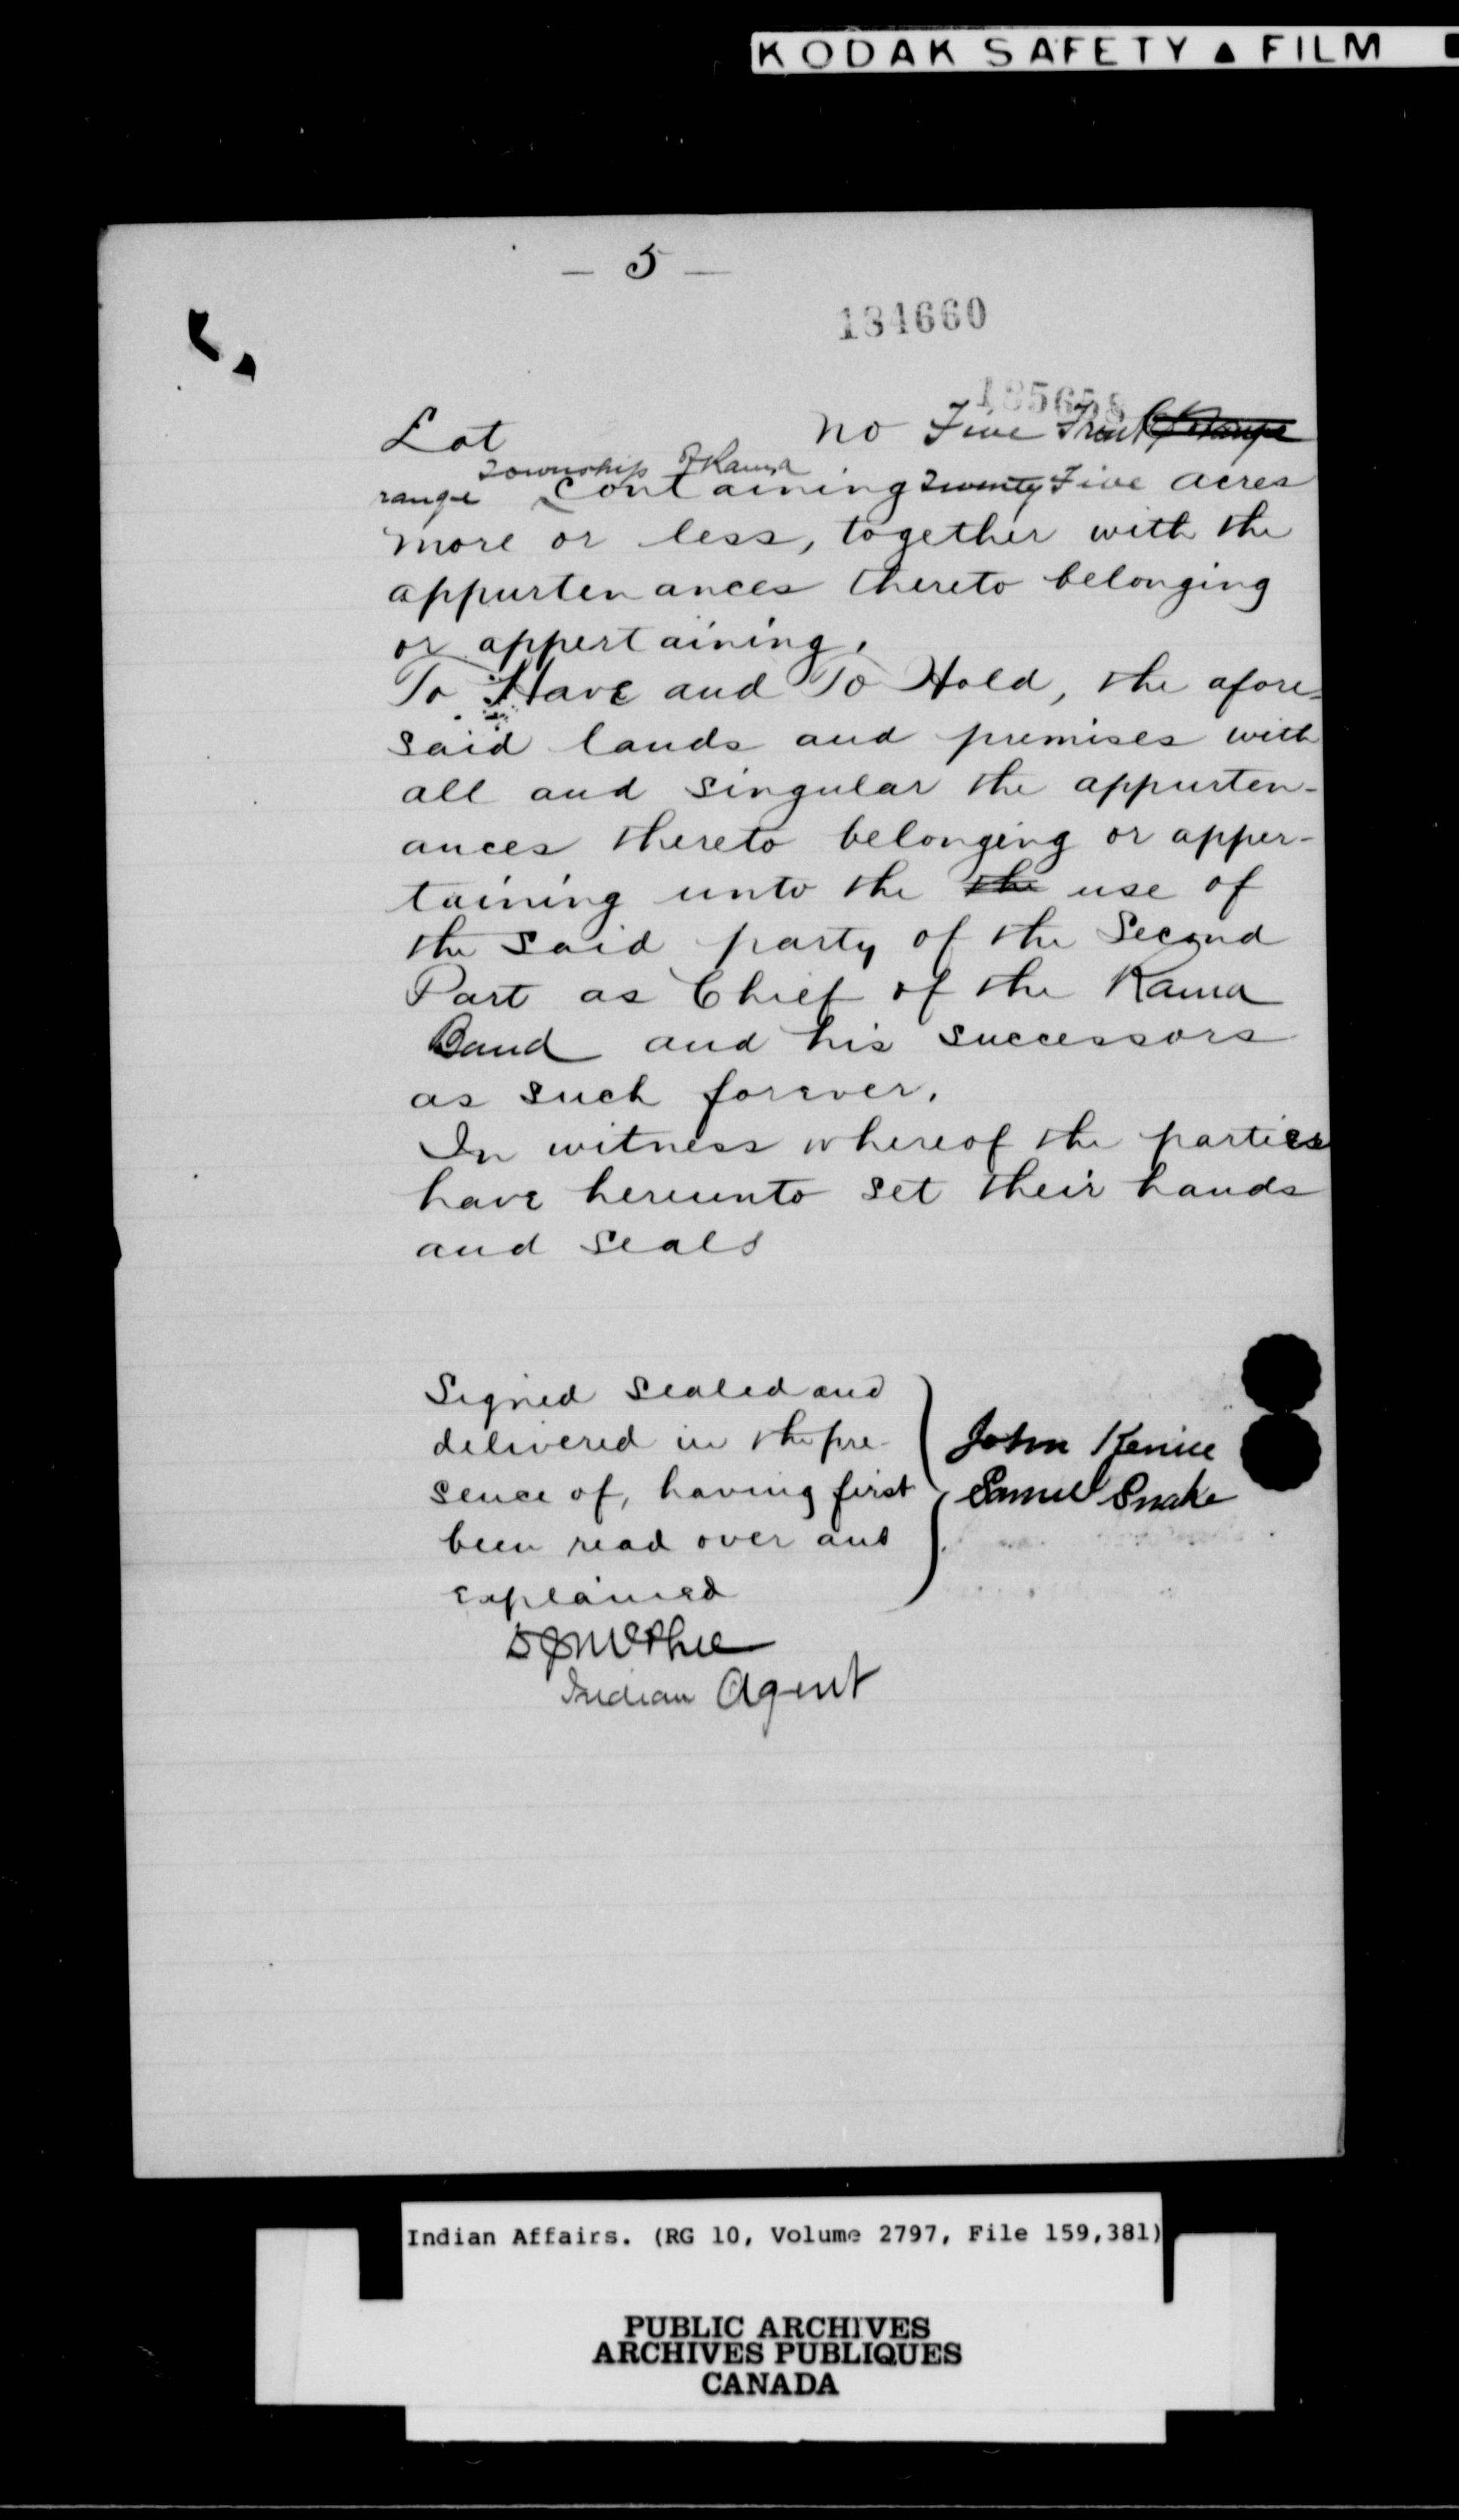 KODAK SAFETY ▲ FILM
– 5 –
134660
185658
Lot no Five Front
Township of Rama
range containing Twenty Five acres
more or less, together with the
appurtenances thereto belonging
or appertaining.
To Have and To Hold, the afore=
said lands and premises with
all and singular the appurten-
ances thereto belonging or apper-
taining unto the the use of
the said party of the Second
Part as Chief of the Rama
Band and his successors
as such forever.
In witness whereof the parties
have hereunto set their hands
and seals
Signed sealed and
delivered in the pre-
sence of, having first
been read over and
explained
John Kenice
Samuel Snake
D J McPhee
Indian Agent
Indian Affairs. (RG 10, Volume 2797, File 159,381)
PUBLIC ARCHIVES
ARCHIVES PUBLIQUES
CANADA